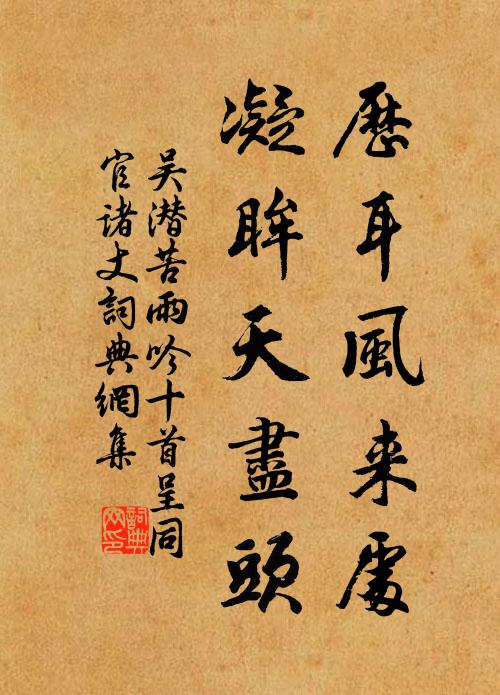 歷耳風来處
凝眸天盡頭
吴潜苦雨吟十首呈同
官诸丈詞典網集
詞典